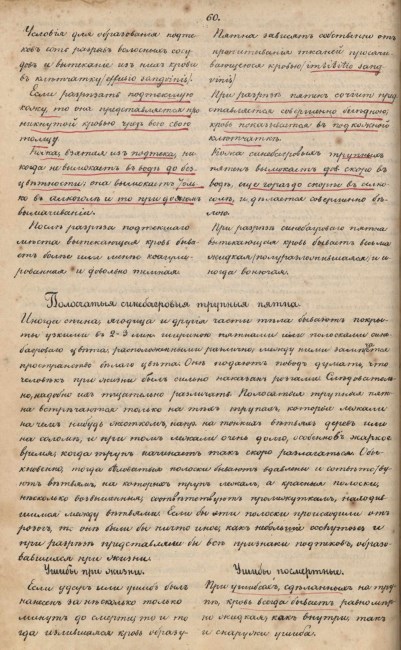 60.
Условія для образованія подтековъ
ковъ есть разрывъ волосныхъ сосу
довъ и вытеканіе изъ нихъ крови
въ клѣтчатку (effusio sanguinis).
Если разрѣзать подтекшую
кожу, то она представляется про
никнутой кровью чрезъ всю свою
толщу.
Кожа, взятая изъ подтека, ни
когда не вымокаетъ въ водѣ до без
цвѣтности; она вымокаетъ толь
ко въ алкоголѣ и то при долгомъ
вымачиваніи.
Послѣ разрѣза подтекшаго
мѣста вытекающая кровь быва
етъ болѣе или менѣе коагули
рованная и довольно темная
Пятна зависятъ собственно отъ
пропитыванія тканей просачи
вающеюся кровью (imbibitio sang
vinis)
При разрѣзѣ пятенъ сосчитъ пред
ставляется совершенно блѣдною;
кровь показывается въ подкожной
клѣтчаткѣ.
Кожа синебагровыхъ трупныхъ
пятенъ вымокаетъ довольно скоро въ
водѣ, еще гораздо скорѣе въ алко
голѣ, и дѣлается совершенно бѣ
лою.
При разрѣзѣ синебагроваго пятна
вытекающая кровь бываетъ весьма
жидкая, полуразложившаяся, и и
ногда вонючая.
Полосатыя синебагровыя трупныя пятна.
Иногда спина, ягодицы и другія части тѣла бываютъ покры
ты узкими въ 2-3 лин. шириною пятнами или полосками сине
багроваго цвѣта, расположенными различно, между ними замѣтны
пространства бѣлаго цвѣта. Онѣ подаютъ поводъ думать, что
человѣкъ при жизни былъ сильно наказанъ розгами. Слѣдователь
но, надобно ихъ тщательно различать. Полосатыя трупныя пят
на встрѣчаются только на тѣхъ трупахъ, которые лежали
на чемъ нибудь жесткомъ, напр. на тонкихъ вѣтвяхъ деревъ или
на соломѣ, и при томъ лежали очень долго, особенно въ жаркое
время, когда трупъ начинаетъ такъ скоро разлагаться. Обы
кновенно, тогда бѣловатыя полоски бываютъ вдавлены и соотвѣтству
ютъ вѣтвямъ, на которыхъ трупъ лежалъ, а красныя полоски,
нѣсколько возвышенныя, соотвѣтствуютъ промежуткамъ, находив
шимся между вѣтвями. Если бы эти полоски происходили отъ
розогъ, то они были бы ничто иное, какъ небольшіе подтеки и
при разрѣзѣ представляли бы всѣ признаки подтековъ, образо
вавшихся при жизни.
Ушибы при жизни.
Если ударъ или ушибъ былъ
нанесенъ за нѣсколько только
минутъ до смерти, то и то
гда излившаяся кровь образу-
Ушибы посмертные.
При ушибахъ, сдѣланныхъ на тру
пѣ, кровь всегда бываетъ равномѣр
но жидкая, какъ внутри, такъ
и снаружи ушиба.